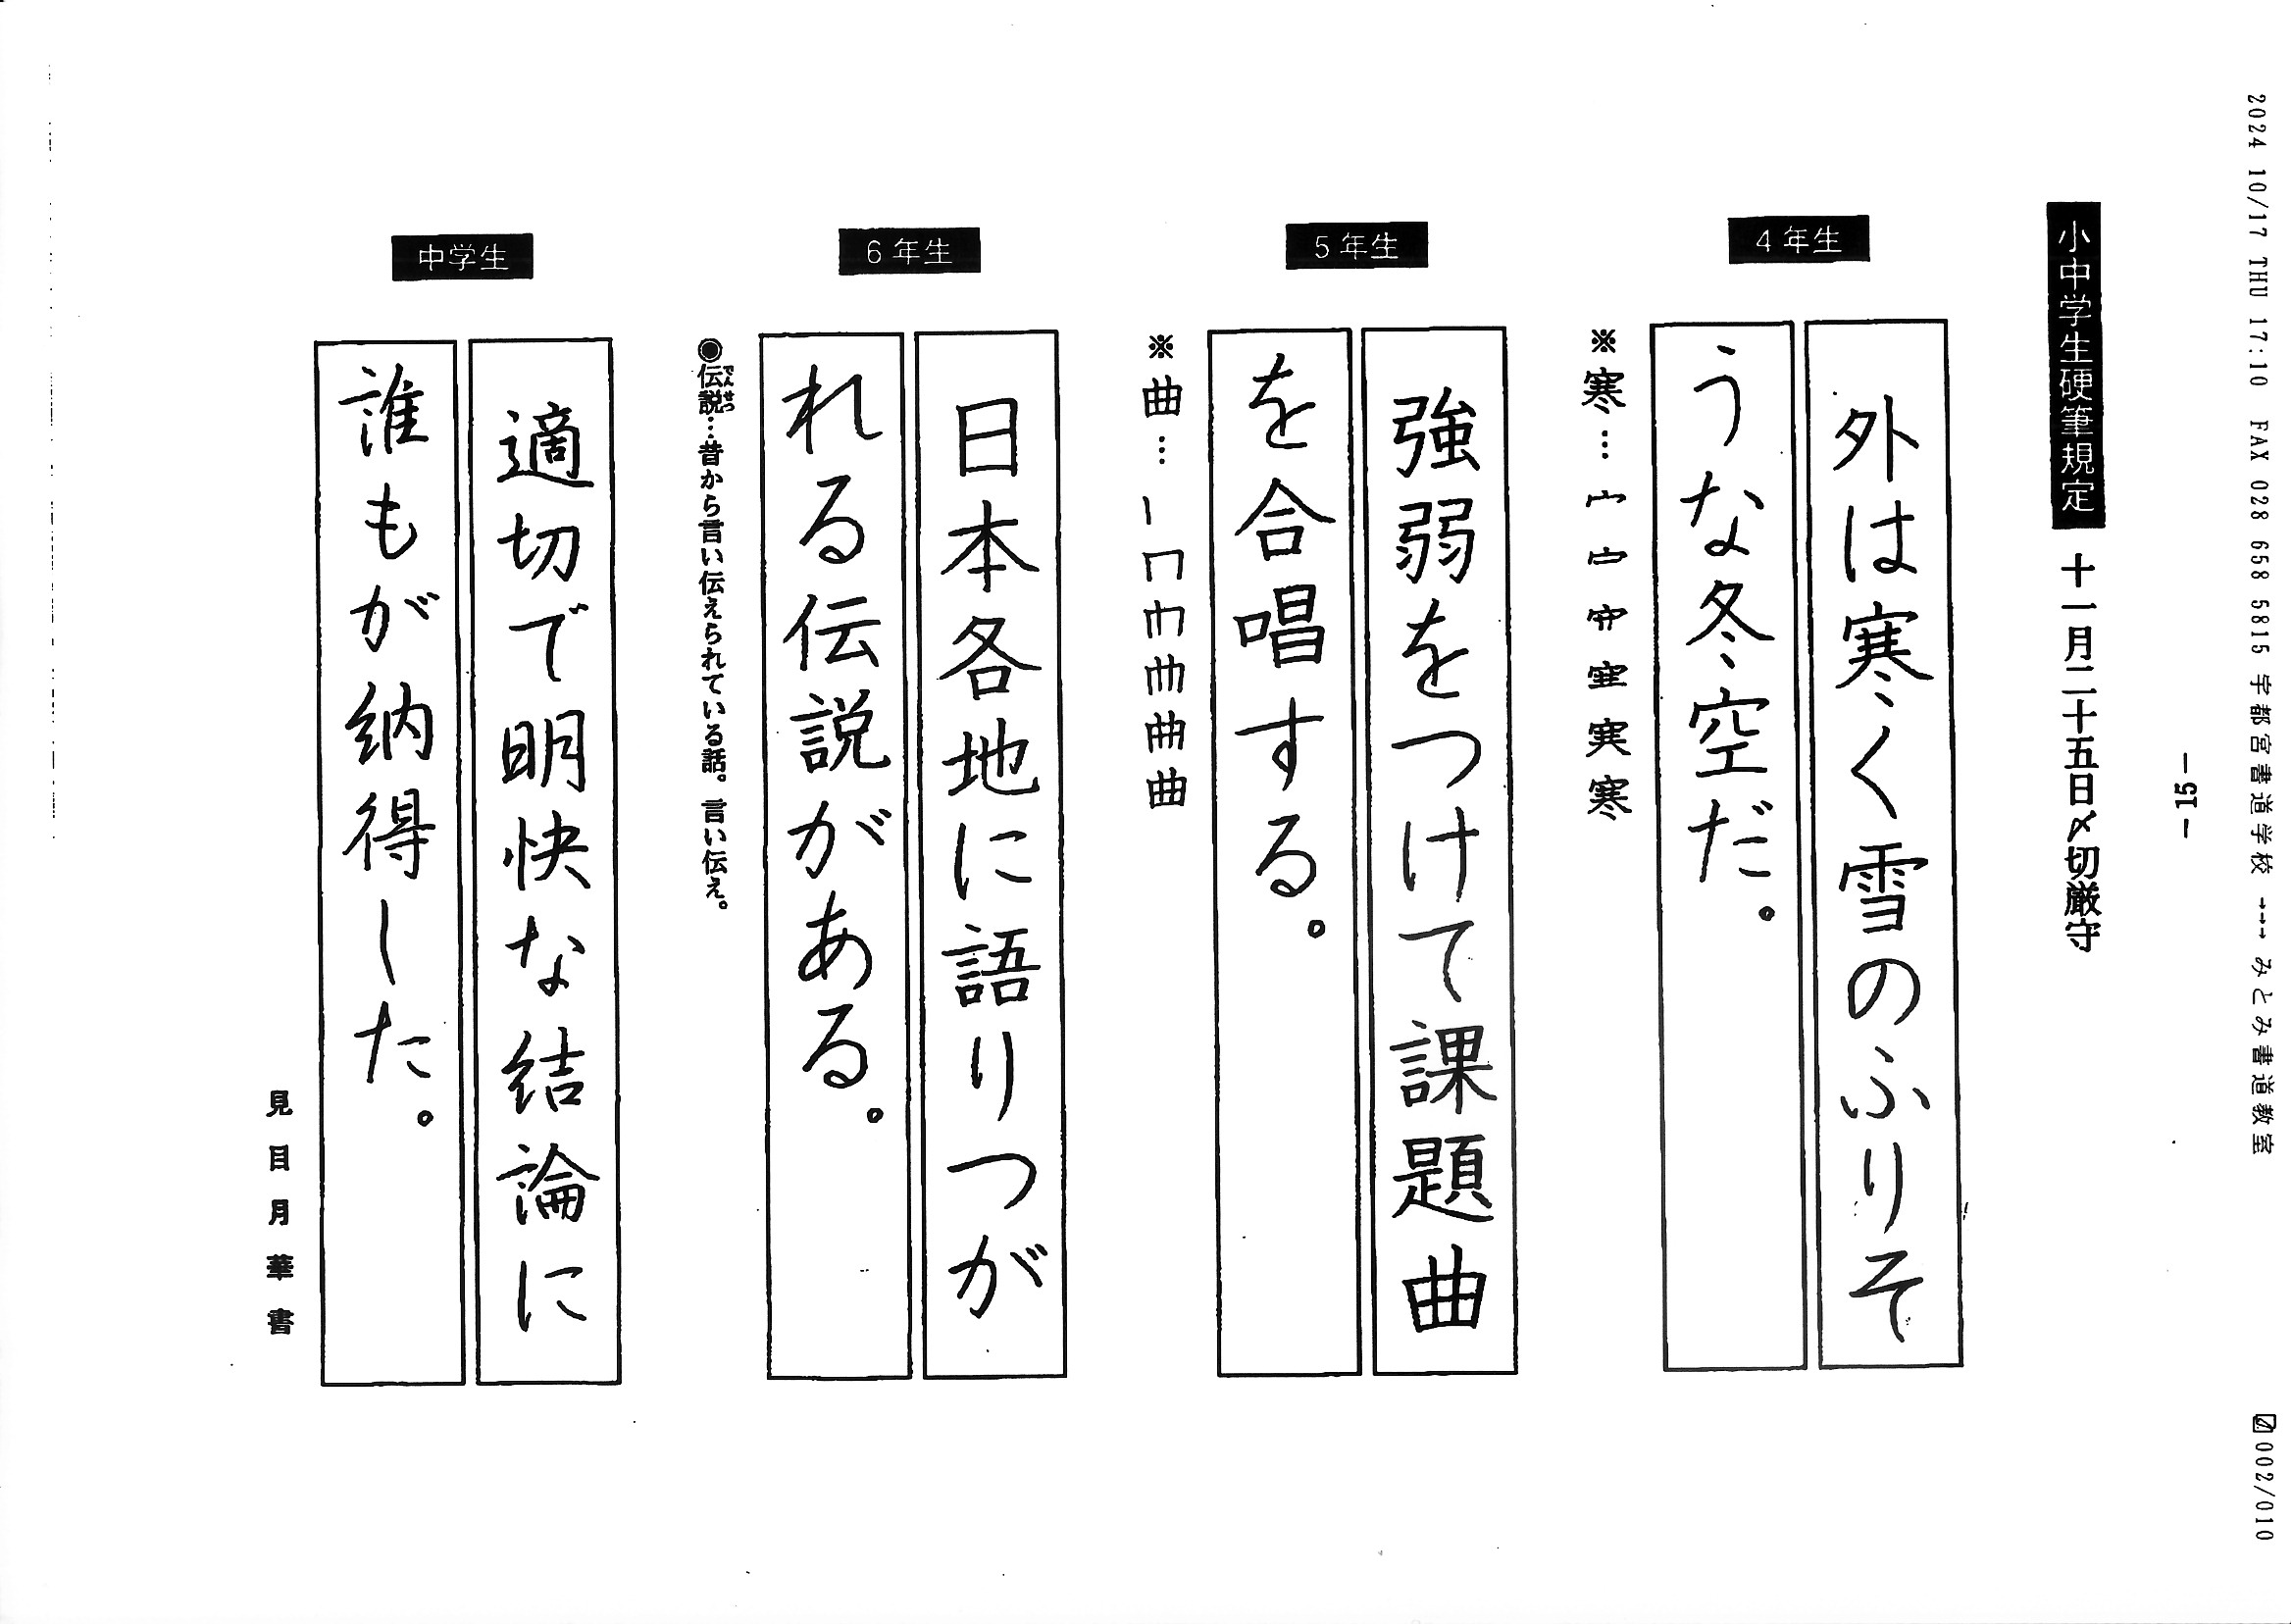 2024 10/17 THU 17:10 FAX 028 658 5815 宇都宮書道学校 →→→ みとみ書道教室 002/010
-15-
小中学生硬筆規定 十一月二十五日〆切厳守
4年生
外は寒く雪のふりそ
うな冬空だ。
※寒…
寒
5年生
強弱をつけて課題曲
を合唱する。
※曲…
曲
6年生
日本各地に語りつが
れる伝説がある。
◉伝説…昔から言い伝えられている話。言い伝え。
でんせつ
中学生
適切で明快な結論に
誰もが納得した。
見目月華書